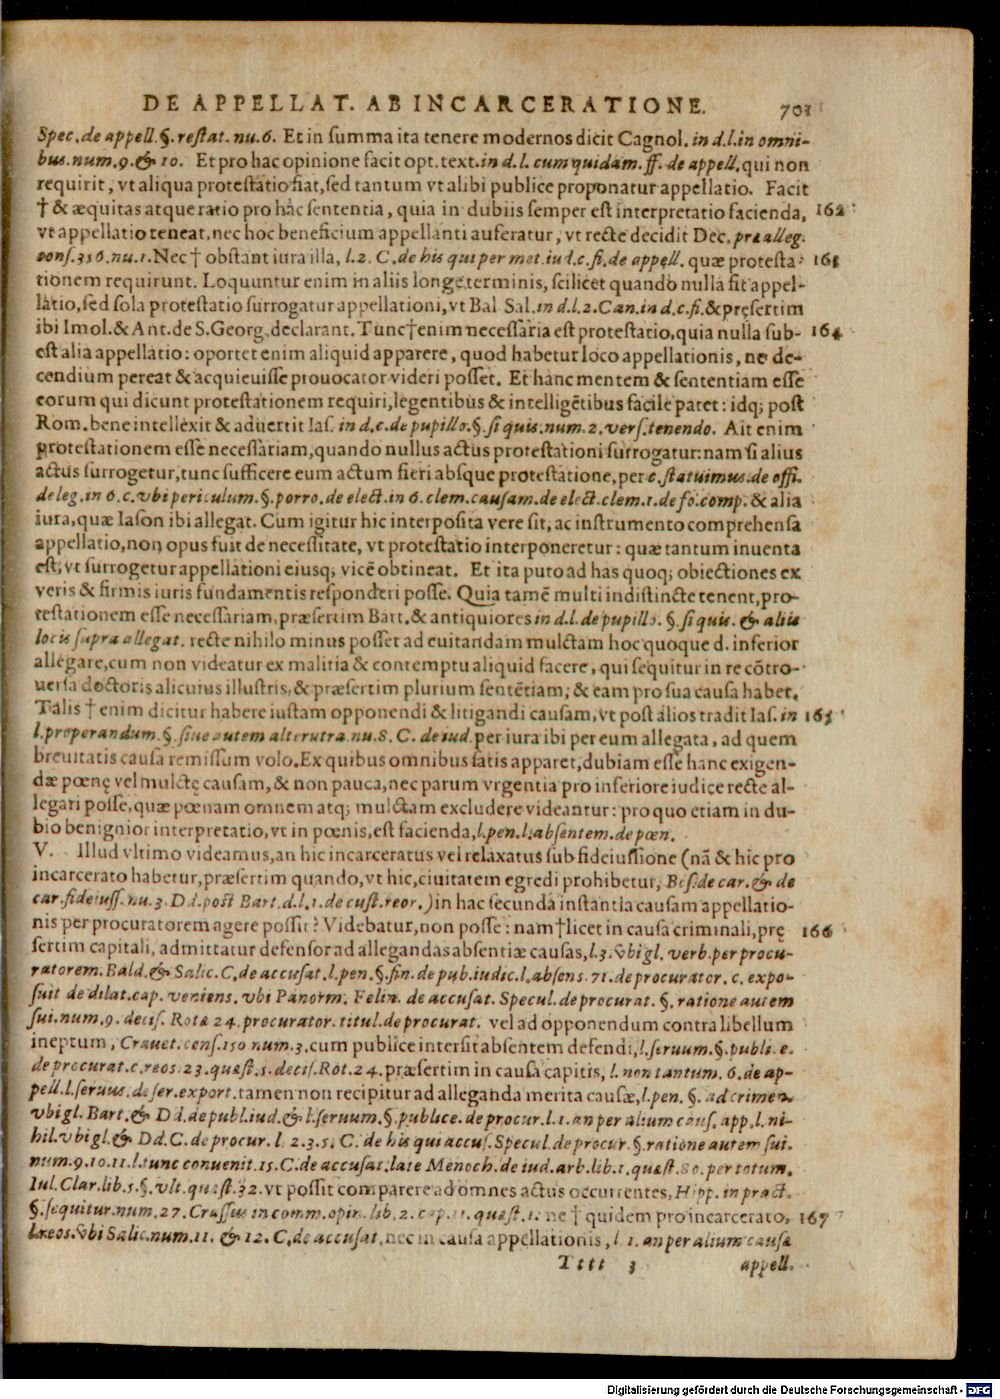 DE APPELLAT. AB INCARCERATIONE. 701
Spec. de appell. §. restat. nu. 6. Et in summa ita tenere modernos dicit Cagnol. in d. l. in omni-
bus. num. 9. & 10. Et pro hac opinione facit opt. text. in d. l. cum quidam. ff. de appell. qui non
requirit, vt aliqua protestatio fiat, sed tantum vt alibi publice proponatur appellatio. Facit
† & æquitas atque ratio pro hac sententia, quia in dubiis semper est interpretatio facienda, 162
vt appellatio teneat, nec hoc beneficium appellanti auferatur, vt recte decidit Dec. præalleg.
cons. 316. nu. 1. Nec † obstant iura illa, l. 2. C. de his qui per met. iud. c. fi. de appell. quæ protesta- 163
tionem requirunt. Loquuntur enim in aliis longe terminis, scilicet quando nulla fit appel-
latio, sed sola protestatio surrogatur appellationi, vt Bal. Sal. in d. l. 2. Can. in d. c. fi. & præsertim
ibi Imol. & Ant. de S. Georg. declarant. Tunc † enim necessaria est protestatio, quia nulla sub- 164
est alia appellatio: oportet enim aliquid apparere, quod habetur loco appellationis, ne de-
cendium pereat & acquieuisse prouocator videri posset. Et hanc mentem & sententiam esse
eorum qui dicunt protestationem requiri, legentibus & intelligētibus facile patet: idq; post
Rom. bene intellexit & aduertit Ias. in d. c. de pupillo. §. si quis. num. 2. vers. tenendo. Ait enim
protestationem esse necessariam, quando nullus actus protestationi surrogatur: nam si alius
actus surrogetur, tunc sufficere eum actum fieri absque protestatione, per c. statuimus. de offi.
deleg. in 6. c. vbi periculum. §. porro. de elect. in 6. clem. causam. de elect. clem. 1. de fo. comp. & alia
iura, quæ Iason ibi allegat. Cum igitur hic interposita vere sit, ac instrumento comprehensa
appellatio, non opus fuit de necessitate, vt protestatio interponeretur: quæ tantum inuenta
est, vt surrogetur appellationi eiusq; vicē obtineat. Et ita puto ad has quoq; obiectiones ex
veris & firmis iuris fundamentis responderi posse. Quia tamē multi indistincte tenent, pro-
testationem esse necessariam, præsertim Bart. & antiquiores in d. l. de pupillo. §. si quis. & aliis
locis supra allegat. recte nihilo minus posset ad euitandam mulctam hoc quoque d. inferior
allegare, cum non videatur ex malitia & contemptu aliquid facere, qui sequitur in re cōtro-
uersa doctoris alicuius illustris, & præsertim plurium sentētiam, & eam pro sua causa habet.
Talis † enim dicitur habere iustam opponendi & litigandi causam, vt post alios tradit Ias. in 165
l. properandum. §. siue autem alterutra. nu. 8. C. de iud. per iura ibi per eum allegata, ad quem
breuitatis causa remissum volo. Ex quibus omnibus satis apparet, dubiam esse hanc exigen-
dæ pœnę vel mulctę causam, & non pauca, nec parum vrgentia pro inferiore iudice recte al-
legari posse, quæ pœnam omnem atq; mulctam excludere videantur: pro quo etiam in du-
bio benignior interpretatio, vt in pœnis, est facienda, l. pen. l. absentem. de pœn.
V. Illud vltimo videamus, an hic incarceratus vel relaxatus sub fideiussione (nā & hic pro
incarcerato habetur, præsertim quando, vt hic, ciuitatem egredi prohibetur, Bos. de car. & de
car. fideiuss. nu. 3. Dd. post Bart. d. l. 1. de cust. reor.) in hac secunda instantia causam appellatio-
nis per procuratorem agere possit? Videbatur, non posse: nam † licet in causa criminali, prę 166
sertim capitali, admittatur defensor ad allegandas absentiæ causas, l. 3. vbi gl. verb. per procu-
ratorem. Bald. & Salic. C. de accusat. l. pen. §. fin. de pub. iudic. l. absens. 71. de procurator. c. expo-
suit de dilat. cap. veniens. vbi Panorm. Felin. de accusat. Specul. de procurat. §. ratione autem
sui. num. 9. decis. Rotæ 24. procurator. titul. de procurat. vel ad opponendum contra libellum
ineptum, Crauet. cons. 150 num. 3. cum publice intersit absentem defendi, l. seruum. §. publi. e.
de procurat. c. reos. 23. quæst. 5. decis. Rot. 24. præsertim in causa capitis, l. non tantum. 6. de ap-
pell. l. seruus. de ser. export. tamen non recipitur ad alleganda merita causæ, l. pen. §. ad crimen.
vbi gl. Bart. & Dd. de publ. iud. & l. seruum. §. publice. de procur. l. 1. an per alium caus. app. l. ni-
hil. vbi gl. & Dd. C. de procur. l. 2. 3. 5. C. de his qui accus. Specul. de procur. §. ratione autem sui.
num. 9. 10. 11. l. tunc conuenit. 15. C. de accusat. late Menoch. de iud. arb. lib. 1. quæst. 80. per totum.
Iul. Clar. lib. 5. §. vlt. quæst. 32. vt possit comparere ad omnes actus occurrentes, Hipp. in pract.
§. sequitur. num. 27. Crassus in comm. opin. lib. 2. cap. 11. quæst. 1. ne † quidem pro incarcerato, 167
l. reos. vbi Salic. num. 11. & 12. C. de accusat. nec in causa appellationis, l. 1. an per alium causæ
Tttt 3 appell.
Digitalisierung gefördert durch die Deutsche Forschungsgemeinschaft - DFG